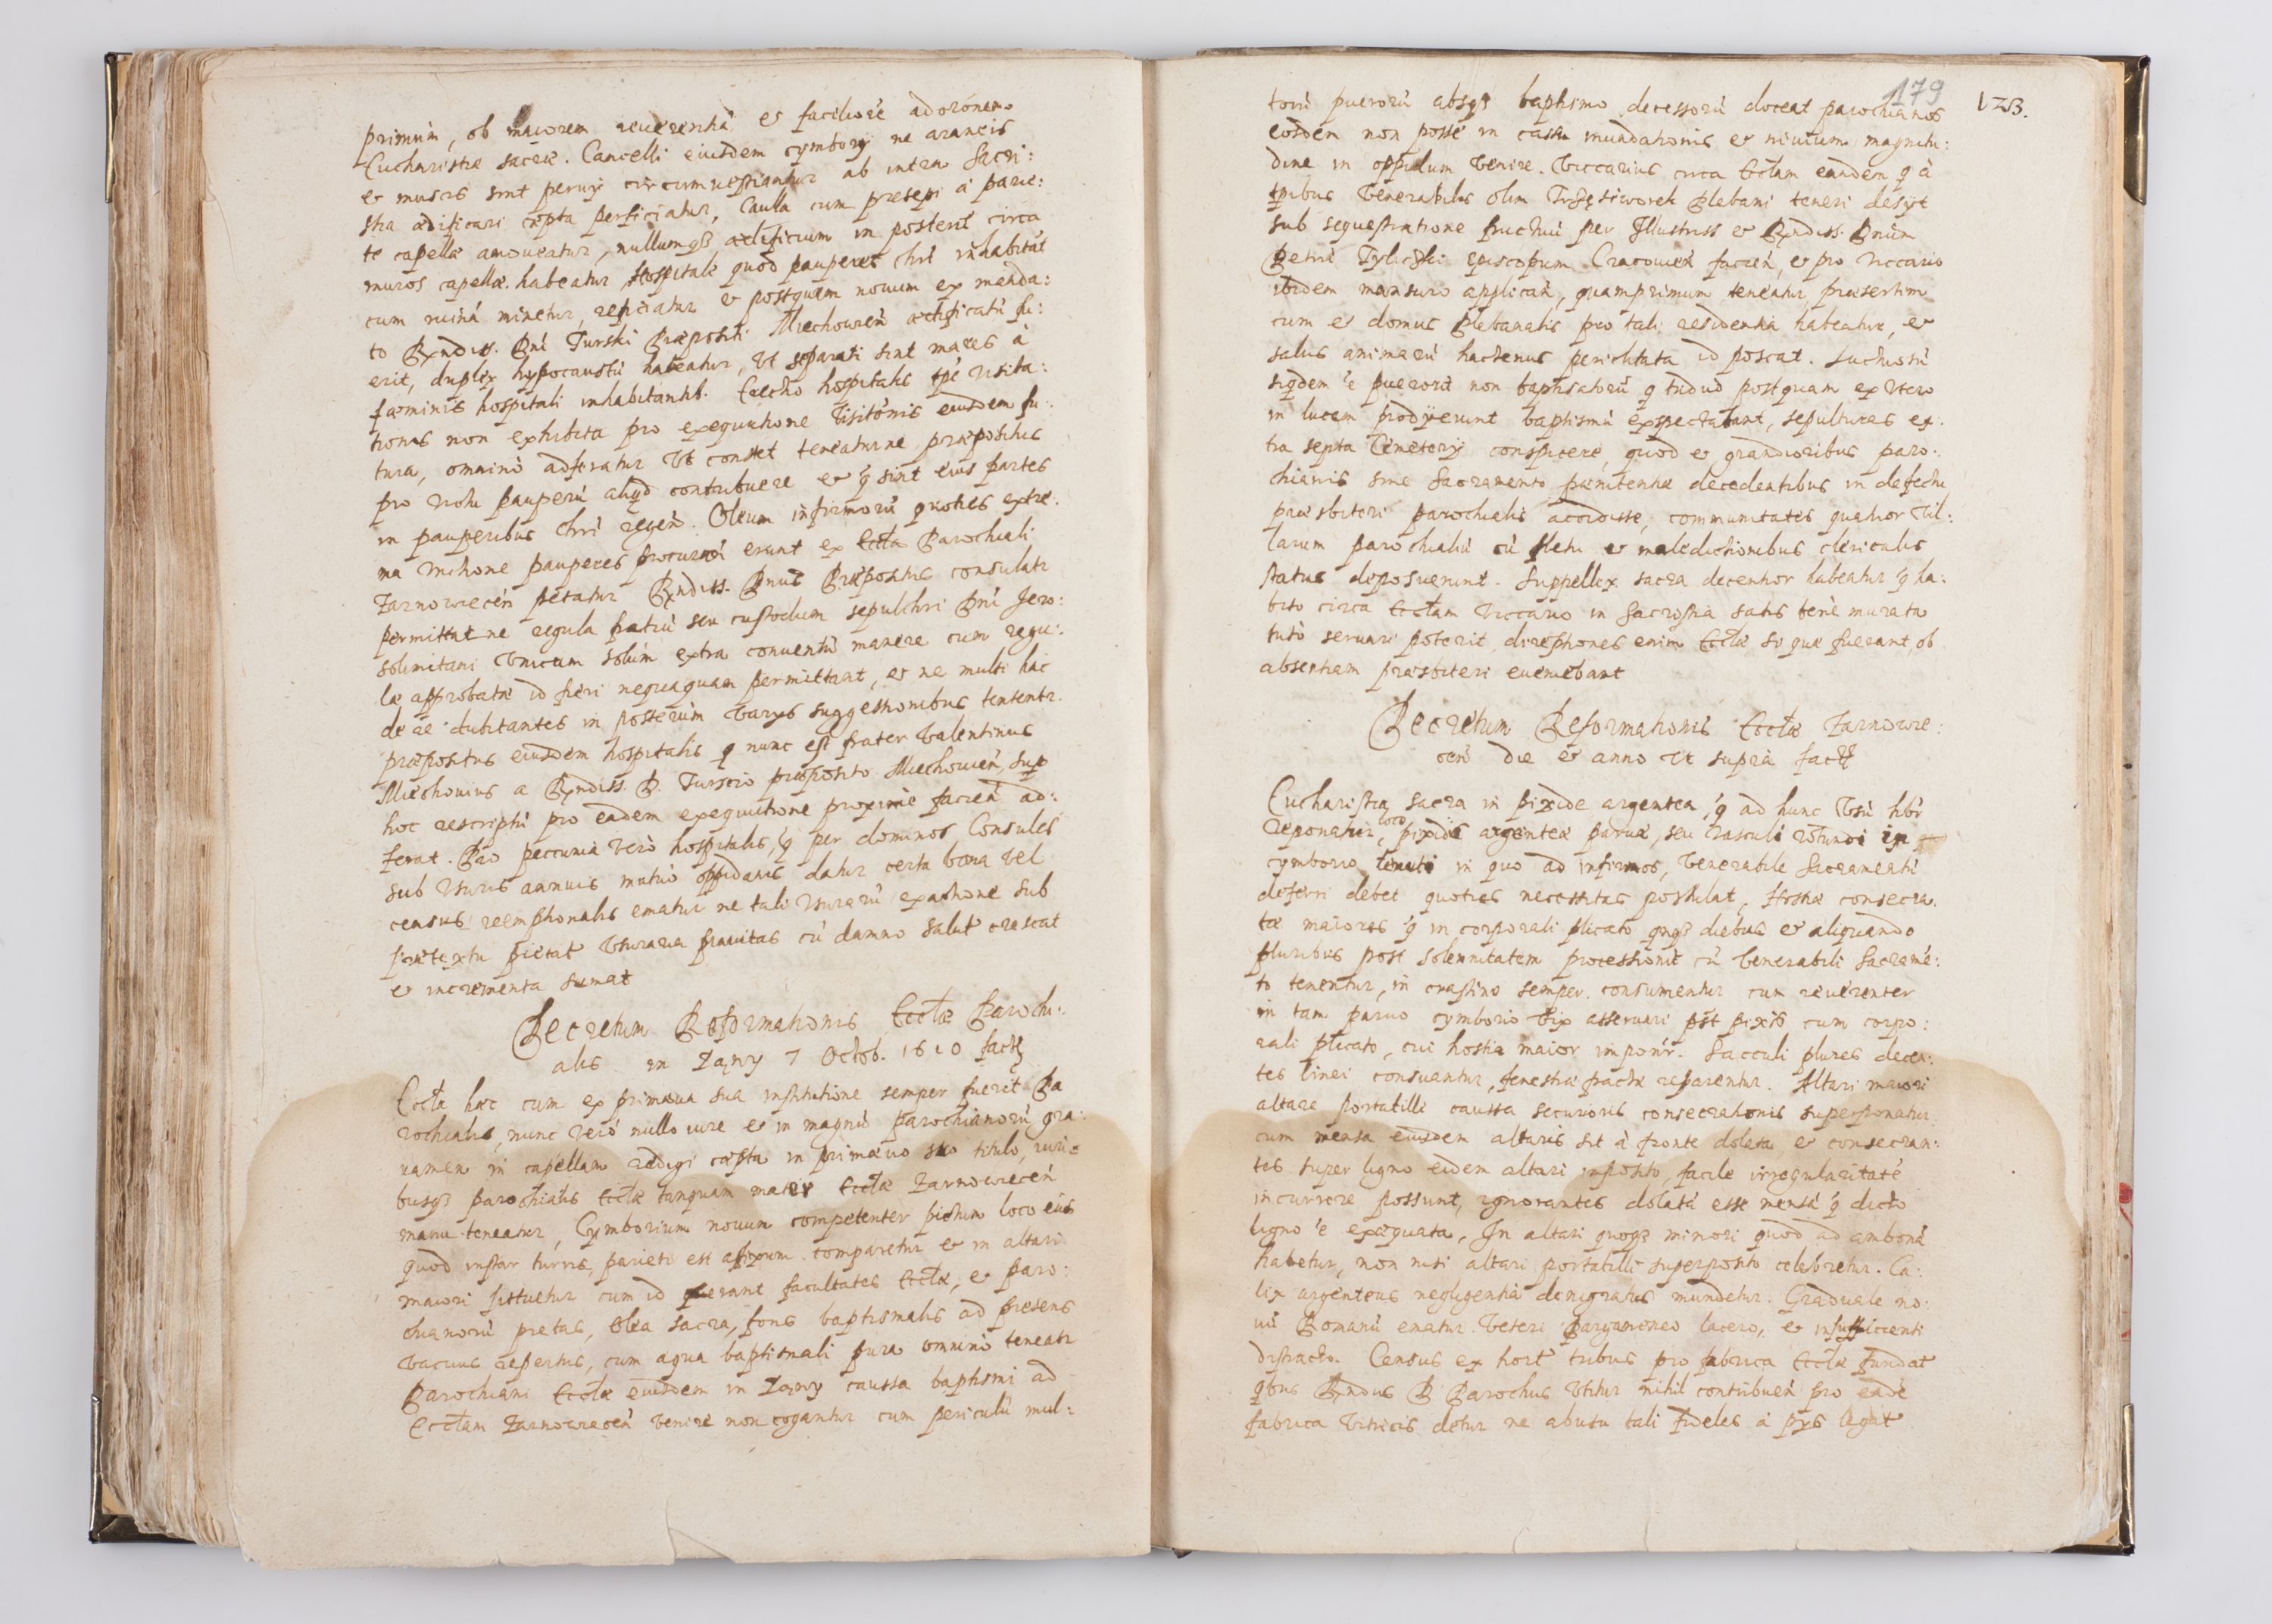 primum, ob maiorem reuerentiã et faciliorẽ adorónem
Eucharistiæ sacræ. Cancelli eiusdem cymborij ne araneis
et muscis sint peruij circumuestiantur ab intra Sacri:
stia ædificari cæpta perficiatur, Caula cum præsepi à parie:
te capellæ amoueatur, nullumq3 ædificium in posterũ circa
muros capellæ habeatur Hospitale quod pauperes Chri inhabitãt
cum ruinã minetur, reficiatur et postquam nouum ex manda:
to Rxndiss. Dni Turski Præpositi Miechouieñ ædificatũ fu:
erit, duplex hypocaustũ habeatur, Vt separati sint mares à
fæminis hospitali inhabitantib. Erectio hospitalis tpe visita:
tionis non exhibita pro exequutione Visitónis eiusdem fu:
tura, omninò adferatur Vt constet teneaturne præpositus
pro victu pauperũ aliqd contribuere et q sint eius partes
in pauperibus Chri regeñ. Oleum infirmorũ quoties extre:
ma vnctione pauperes procurãdi erunt ex Eccla Parochiali
Zarnowiecen petatur Rxndiss. Dnus Præpositus consulatr
permittat ne regula fratrũ seu custodum sepulchri Dni Jero:
solimitani Vnicum solum extra conuentũ manere cum regu:
læ approbatæ id fieri nequaquam permittant, et ne multi hac
de re dubitantes in posterùm Varijs suggestionibus tententr.
præpositus eiusdem hospitalis q nunc est frater Valentinus
Miechouius a Rxndiss. D. Turscio præposito Miechouien, sup
hoc rescriptũ pro eadem exequutione proximè facien ad:
ferat. Pro peccunia verò hospitalis, q per dominos Consules
sub vsuris annuis mutuò oppidanis datur certa bona vel
census reemptionalis ematur ne tali vsurarũ exactione sub
prætextu pietat Vsuraria prauitas cũ damno salut crescat
et incrementa sumat
Decretum Reformationis Ecclæ Parochi:
alis in Zaɳwy 7 Octob. 1610 fact
Eccla hæc cum ex primæua sua institutione semper fuerit Pa
rochialis, nunc verò nullo iure et in magnũ Parochianorũ gra:
uamen in capellam redigi cæpta in primæuo suo titulo, iuri:
busq3 parochialis Ecclæ tanquam mater Ecclæ Zarnowiecen
manu teneatur, Cymborium nouum competenter pictum loco eius
quod instar turris, parieti est afixum comparetur et in altari
maiori sittuetur cum id ferant facultates Ecclæ, et paro:
chianorũ pietas, Olea sacra, fons baptismalis ad præsens
vacuus repertus, cum aqua baptismali pura omninò teneatr
Parochiani Ecclæ eiusdem in Zaɳwy caussa baptismi ad
Ecclam Zarnowiecen venire non cogantur cum periculũ mul:
179
173.
torũ puerorũ absq3 baptismo decessorũ doceat parochianos
eosdem non posse in cassu inundationis et niuium magnitu:
dine in oppidum venire. Viccarius circa Ecclam eandem q à
tpibus Venerabilis olim Plebani teneri desijt
sub sequestratione fructuũ per Jllustriss et Rxndiss. Dnum
Petrũ Tylicki Episcopum Cracouien facien, et pro viccario
ibidem mansuro applican, quamprimum teneatur, præsertim
cum et domus Plebanalis pro tali residentia habeatur, et
salus animarũ hactenus periclitata id poscat. Luctuosũ
siqdem e puerorũ non baptisatorũ q triduò postquam ex vtero
in lucem prodijerunt baptismũ expectabant, sepulturas ex:
tra septa Cemeterij conspicere, quod et grandioribus paro:
chianis sine Sacramento pænitentiæ decedentibus in defectu
præsbiteri parochialis accidisse, communitates quatuor Vil:
larum parochialiũ cũ fletu et maledictionibus clericalis
status deposuerunt. Suppellex sacra decentior habeatur q ha:
bito circa Ecclam viccario in Sacrostia satis benè murata
tutò seruari poterit, direptiones enim Ecclæ si quæ fuerant, ob
absentiam præsbiteri eueniebant
Decretum Reformationis Ecclæ Zarnowie:
cen die et anno vt supra fact
Eucharistia sacra in pixide argentea, q ad hunc Vsũ hbr
reponatur, loco pixidis argenteæ paruæ, seu Vasculi rotundi in
cymborio tenuti in quo ad infirmos, Venerabile Sacramentũ
deferri debet quoties necessitas postulat, Hostiæ consecra
tæ maiores q in corporali plicato qnq3 diebus et aliquando
pluribus post solennitatem processionis cũ Venerabili Sacramé:
to tenentur, in crastino semper consumentur cum reuerenter
in tam paruo cymborio vix asseruari pst pixis cum corpo:
rali plicato, cui hostia maior imponr. Sacculi plures decen:
tes linei consuantur, fenestræ fractæ reparentur. Altari maiori
altare portatille caussa securioris consecrationis superponatur
cum mensa eiusdem altaris sit à fronte dolata, et consecran:
tes super ligno eidem altari imposito, facile irregularitatẽ
incurrere possunt, ignorantes dolatã esse mensã q dicto
ligno e exæquata, Jn altari quoq3 minori quod ad ambonã
habetur, non nisi altari portatilli superposito celebretur. Ca:
lix argenteus negligentià denigratus mundetur. Graduale no:
uũ Romanũ ematur Veteri Pargameneo lacero, et insufficienti
distracto. Census ex hort tribus pro fabrica Ecclæ fundat
qbus Rxndus D Parochus vtitur nihil contribuen pro eadẽ
fabrica Vitricis detur ne abusu tali fideles à pijs legat